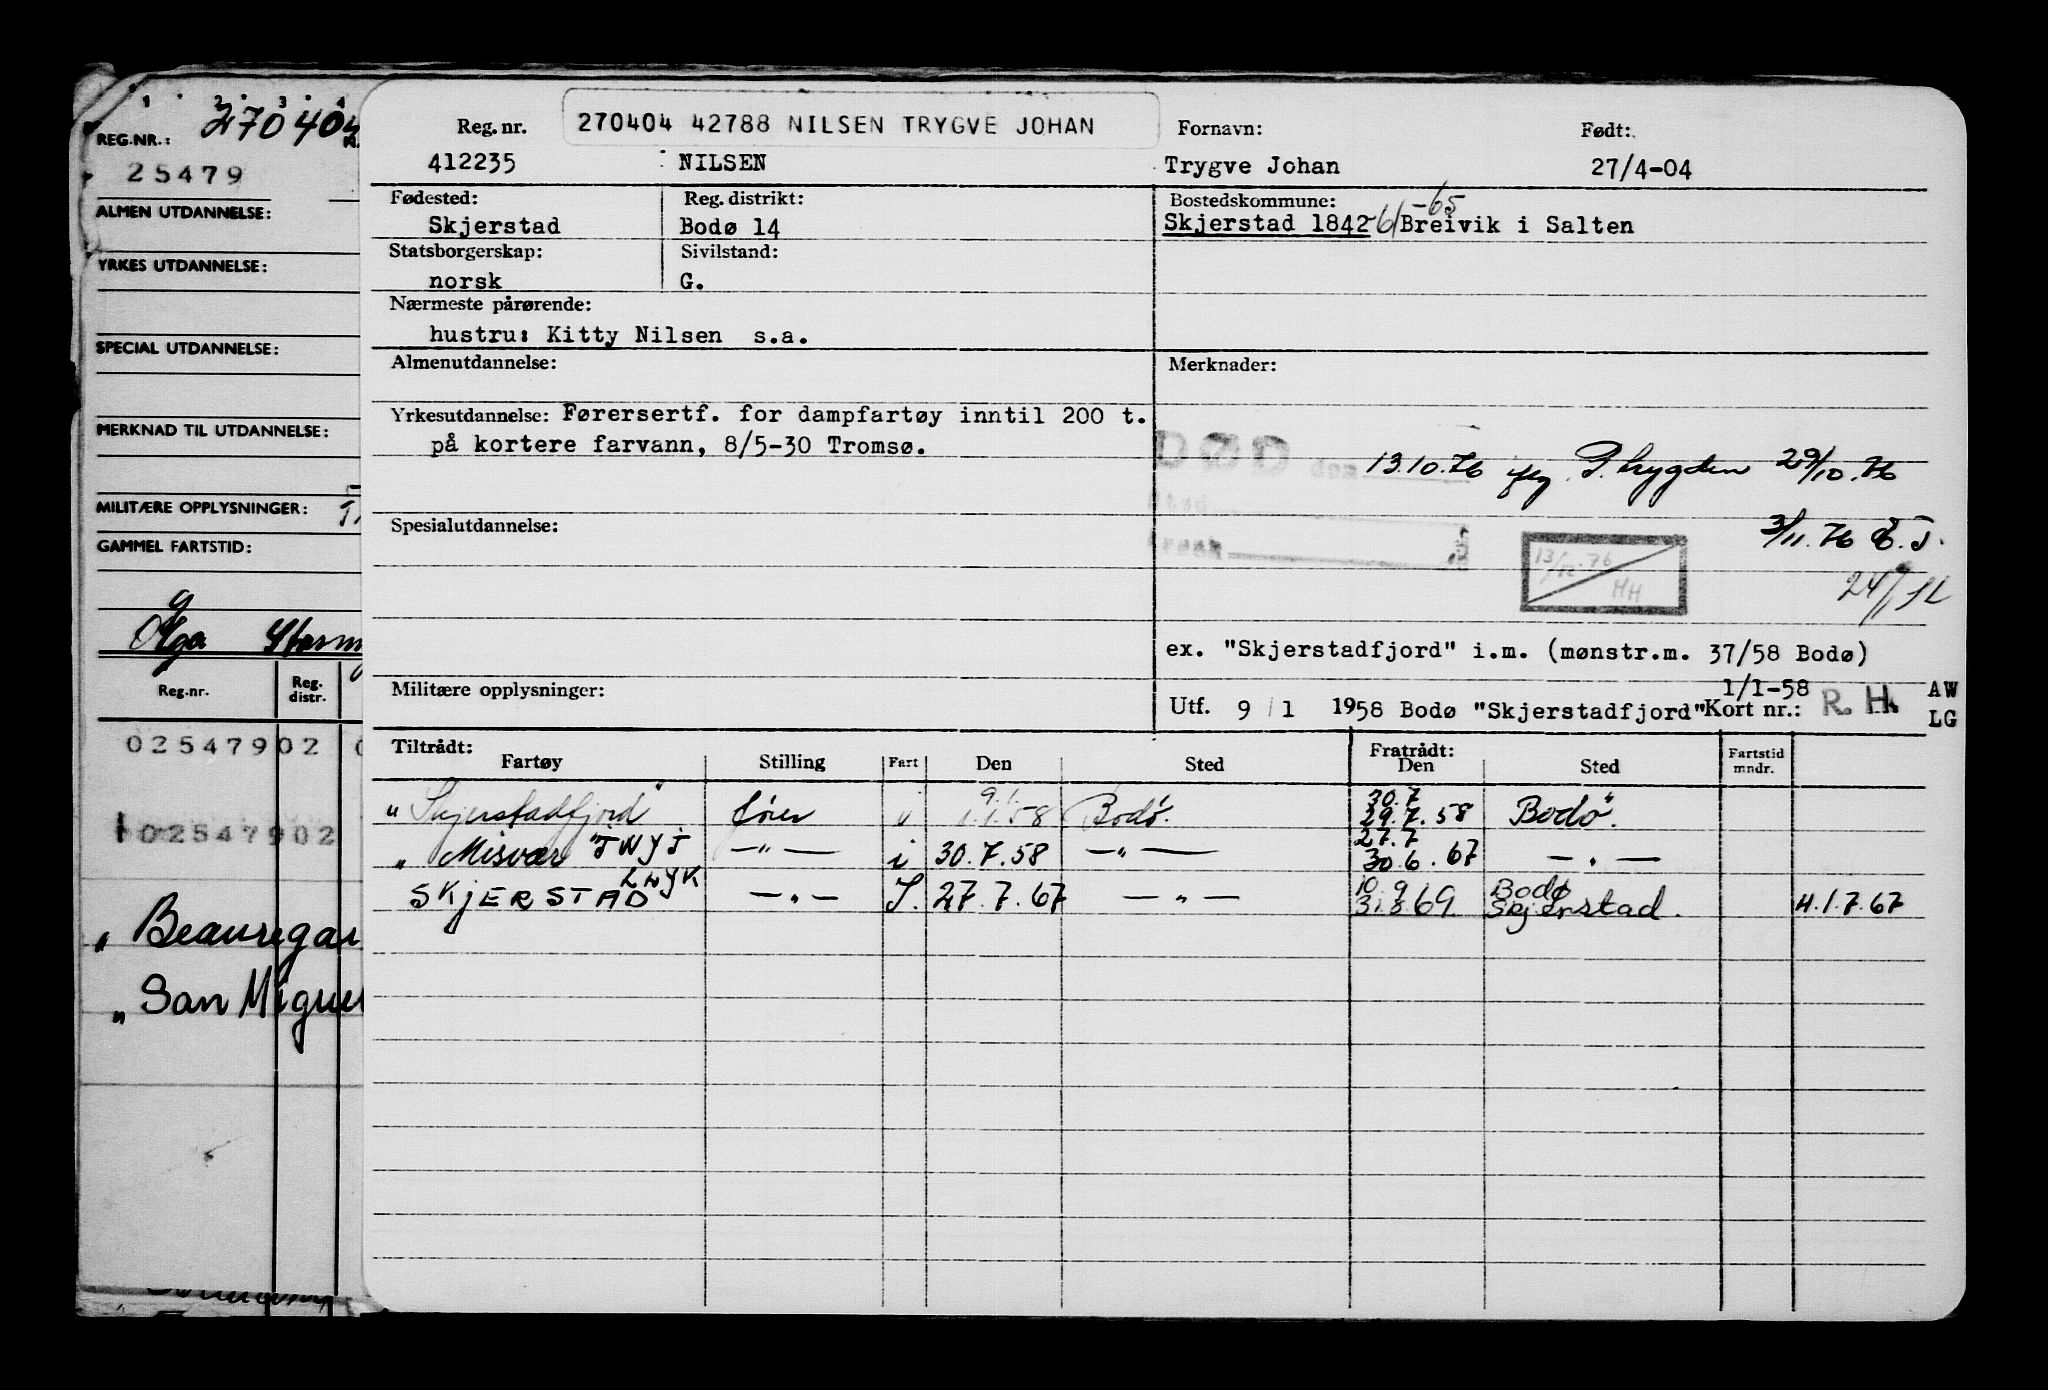 1 2 3 4
REG.NR.: 270404
25479
ALMEN UTDANNELSE:
YRKES UTDANNELSE:
SPECIAL UTDANNELSE:
MERKNAD TIL UTDANNELSE:
MILITÆRE OPPLYSNINGER:
GAMMEL FARTSTID:
Olga
Reg.nr. Reg. distr.
02547902
02547902
" Beauregar
" San Miguel
Reg. nr. 270404 42788 NILSEN TRYGVE JOHAN Fornavn: Født:
412235 NILSEN Trygve Johan 27/4-04
Fødested: Reg. distrikt: Bostedskommune: -65
Skjerstad Bodø 14 Skjerstad 1842-61 Breivik i Salten
Statsborgerskap: Sivilstand:
norsk G.
Nærmeste pårørende:
hustru: Kitty Nilsen s.a.
Almenutdannelse: Merknader:
Yrkesutdannelse: Førersertf. for dampfartøy inntil 200 t.
på kortere farvann, 8/5-30 Tromsø.
DØD den 13.10.76 P.trygden 29/10.76
Spesialutdannelse:
3/11.76
13/12.76
HH
ex. "Skjerstadfjord" i.m. (mønstr.m. 37/58 Bodø)
Militære opplysninger: 1/1-58
Utf. 9/1 1958 Bodø "Skjerstadfjord" Kort nr.: R.H. AW
LG
Tiltrådt: Fratrådt:
Fartøy Stilling Fart Den Sted Den Sted Fartstid mndr.
9.1. 30.7
"Skjerstadfjord" fører i 1.1.58 Bodø. 29.7.58 Bodø.
27.7
" Misvær TWYJ —"— i 30.7.58 —"— 30.6.67 —"—
LNYK 10.9 Bodø
SKJERSTAD —"— I. 27.7.67 —"— 31.8 69. Skjerstad. 4.1.7.67